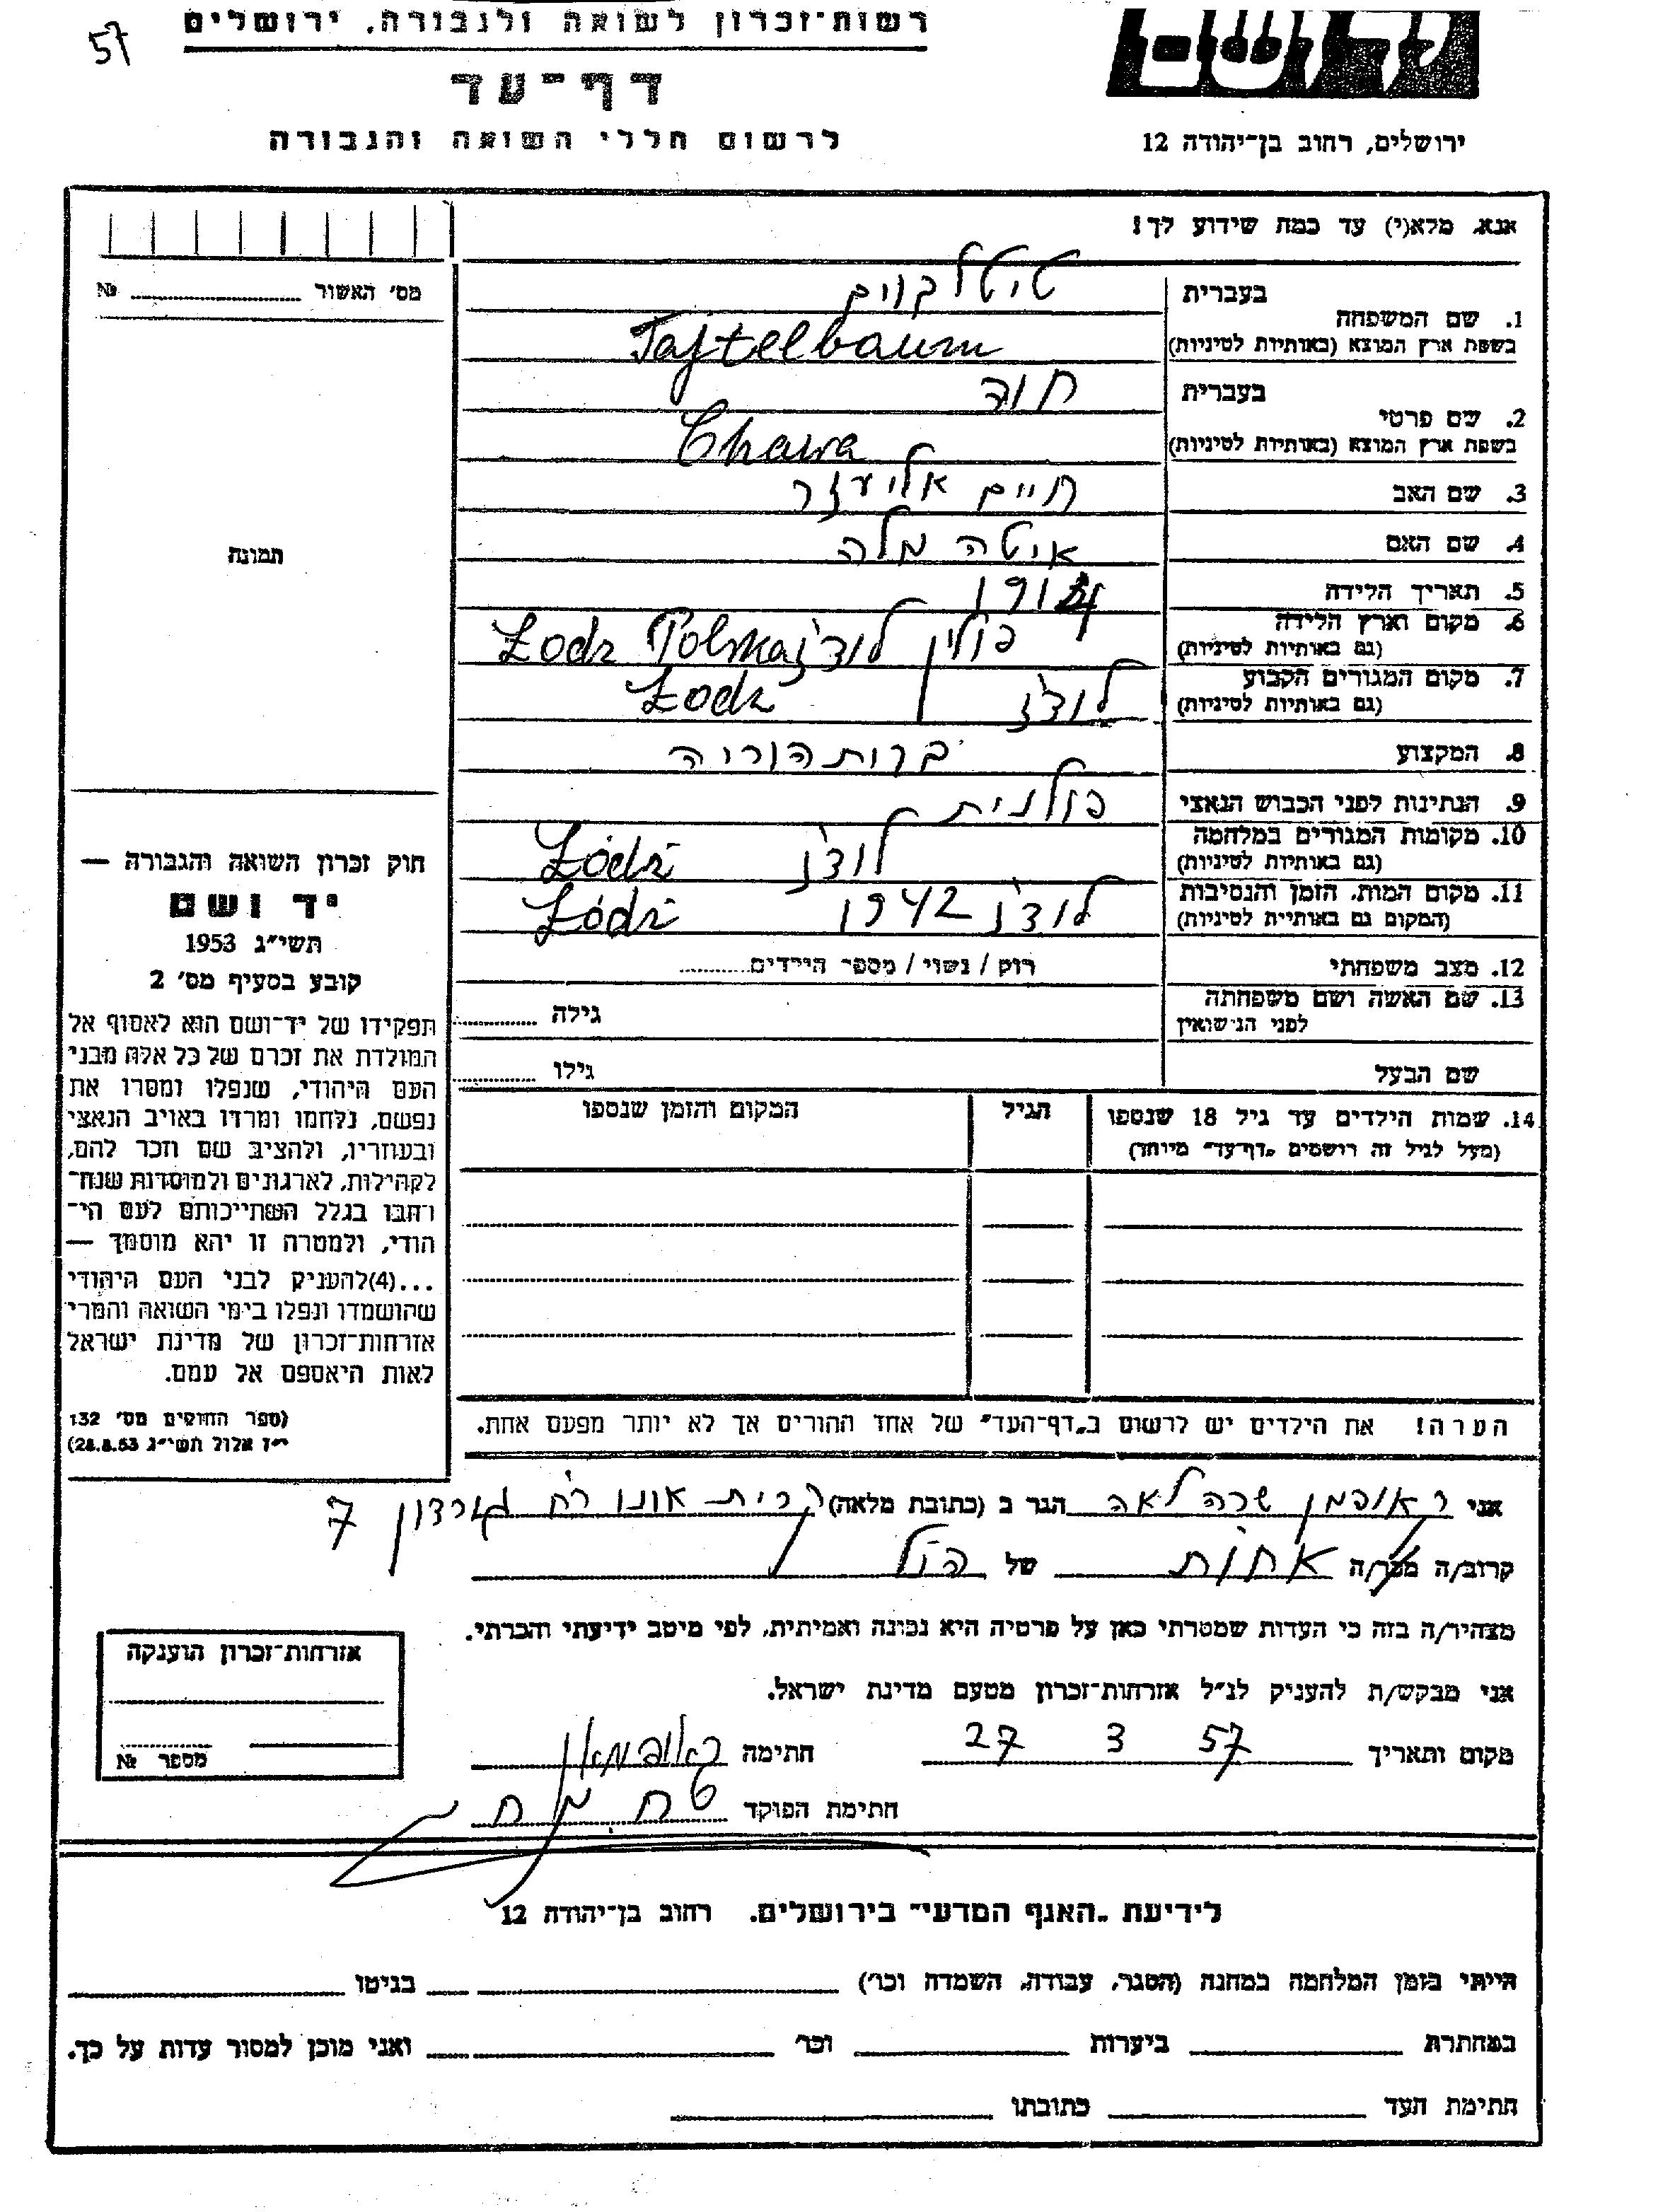 57
רשות־זכרון לשואה ולגבורה, ירושלים
דף־עד
לרשום חללי השואה והגבורה
יד ושם
ירושלים, רחוב בן־יהודה 12
אנא, מלא(י) עד כמה שידוע לך!
מס' האשור № 
בעברית טיטלבוים
1. שם המשפחה
בשפת ארץ המוצא (באותיות לטיניות) Tajtelbaum
בעברית חוה
2. שם פרטי
בשפת ארץ המוצא (באותיות לטיניות) Chawa
3. שם האב חיים אליעזר
4. שם האם איטה מלה
5. תאריך הלידה 1914
6. מקום וארץ הלידה פולין לודז' Łodz Polska
(גם באותיות לטיניות)
7. מקום המגורים הקבוע לודז' Łodz
(גם באותיות לטיניות)
8. המקצוע
9. הנתינות לפני הכבוש הנאצי פולנית
10. מקומות המגורים במלחמה לודז' Łódź
(גם באותיות לטיניות)
11. מקום המות, הזמן והנסיבות לודז' 1942 Łódź
(המקום גם באותיות לטיניות)
12. מצב משפחתי רוק / נשוי / מספר הילדים
13. שם האשה ושם משפחתה גילה
לפני הנישואין
שם הבעל גילו
14. שמות הילדים עד גיל 18 שנספו הגיל המקום והזמן שנספו
(מעל לגיל זה רושמים „דף־עד" מיוחד)
הערה! את הילדים יש לרשום ב„דף־העד" של אחד ההורים אך לא יותר מפעם אחת.
תמונה
חוק זכרון השואה והגבורה —
יד ושם
תשי״ג 1953
קובע בסעיף מס' 2
תפקידו של יד־ושם הוא לאסוף אל
המולדת את זכרם של כל אלה מבני
העם היהודי, שנפלו ומסרו את
נפשם, נלחמו ומרדו באויב הנאצי
ובעוזריו, ולהציב שם וזכר להם,
לקהילות, לארגונים ולמוסדות שנח־
רבו בגלל השתייכותם לעם הי־
הודי, ולמטרה זו יהא מוסמך —
...(4)להעניק לבני העם היהודי
שהושמדו ונפלו בימי השואה והמרי
אזרחות־זכרון של מדינת ישראל
לאות היאספם אל עמם.
(ספר החוקים מס' 132
י״ז אלול תשי״ג 28.8.53)
אני ראופמן שרה לאה הגר ב (כתובת מלאה) קרית אונו רח' גורדון 7
קרוב/ה מכר/ה אחות של הנ״ל
מצהיר/ה בזה כי העדות שמסרתי כאן על פרטיה היא נכונה ואמיתית, לפי מיטב ידיעתי והכרתי.
אני מבקש/ת להעניק לנ״ל אזרחות־זכרון מטעם מדינת ישראל.
מקום ותאריך 27 3 57 חתימה
חתימת הפוקד
אזרחות־זכרון הוענקה
מספר №
לידיעת „האגף המדעי" בירושלים, רחוב בן־יהודה 12
הייתי בזמן המלחמה במחנה (הסגר, עבודה, השמדה וכו') בגיטו
במחתרת ביערות וכו' ואני מוכן למסור עדות על כך.
חתימת העד כתובתו